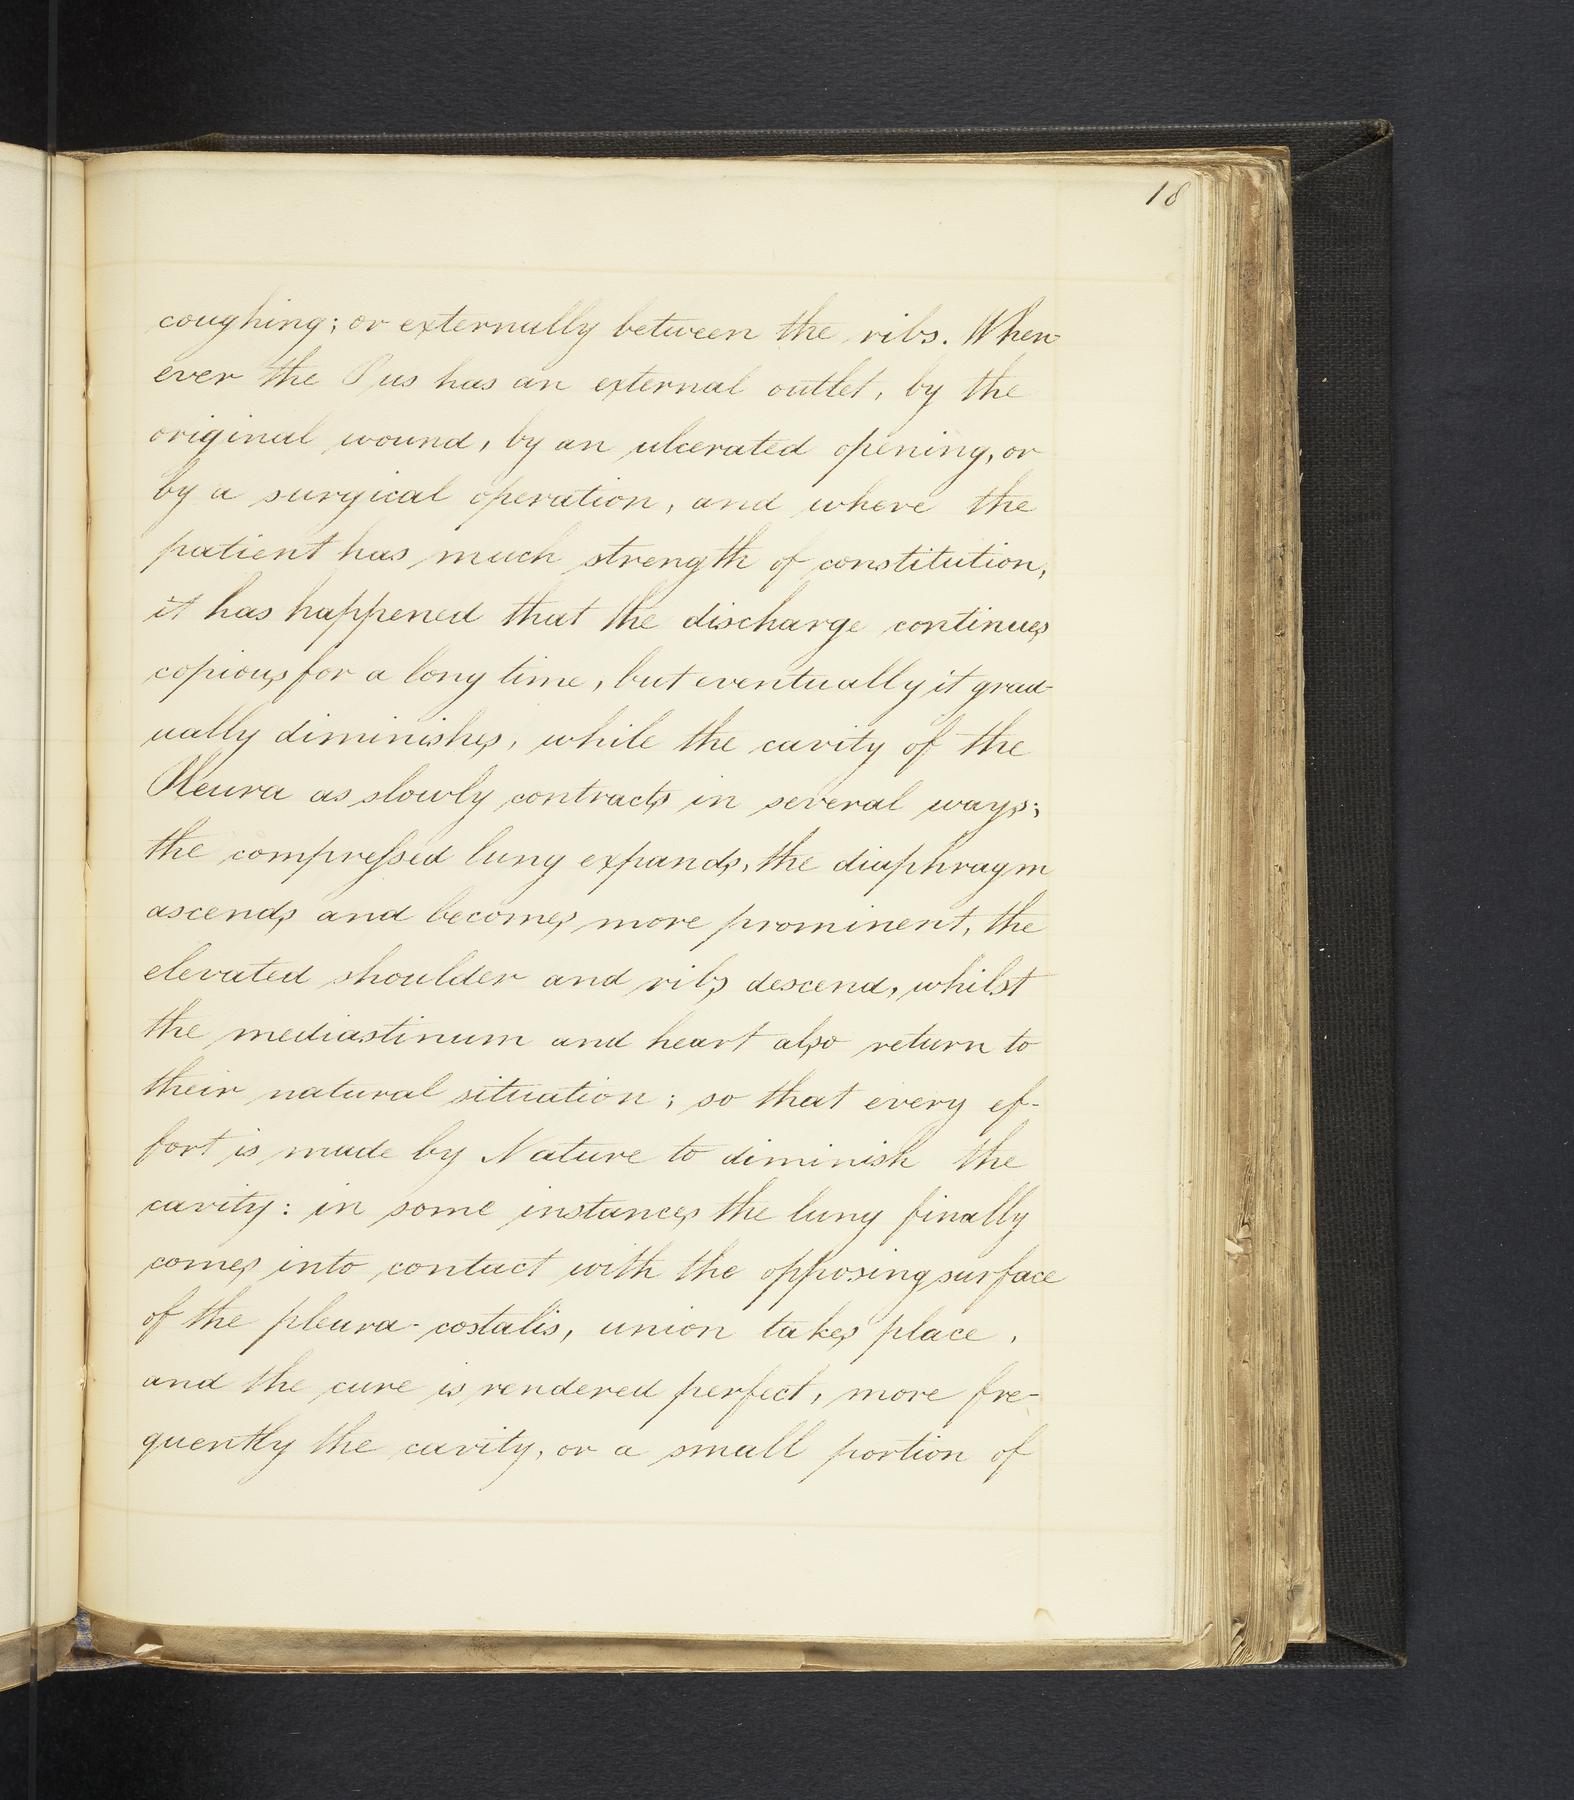 18
coughing; or externally between the ribs. When-
ever the Pus has an external outlet, by the
original wound, by an ulcerated opening, or
by a surgical operation, and where the
patient has much strength of constitution,
it has happened that the discharge continues
copious for a long time, but eventually it grad-
ually diminishes, while the cavity of the
Pleura as slowly contracts in several ways;
the compreſsed lung expands, the diaphragm
ascends and becomes more prominent, the
elevated shoulder and ribs descend, whilst
the mediastinum and heart also return to
their natural situation; so that every ef-
fort is made by Nature to diminish the
cavity: in some instances the lung finally
comes into contact with the opposing surface
of the pleura-costalis, union takes place,
and the cure is rendered perfect, more fre-
quently the cavity, or a small portion of